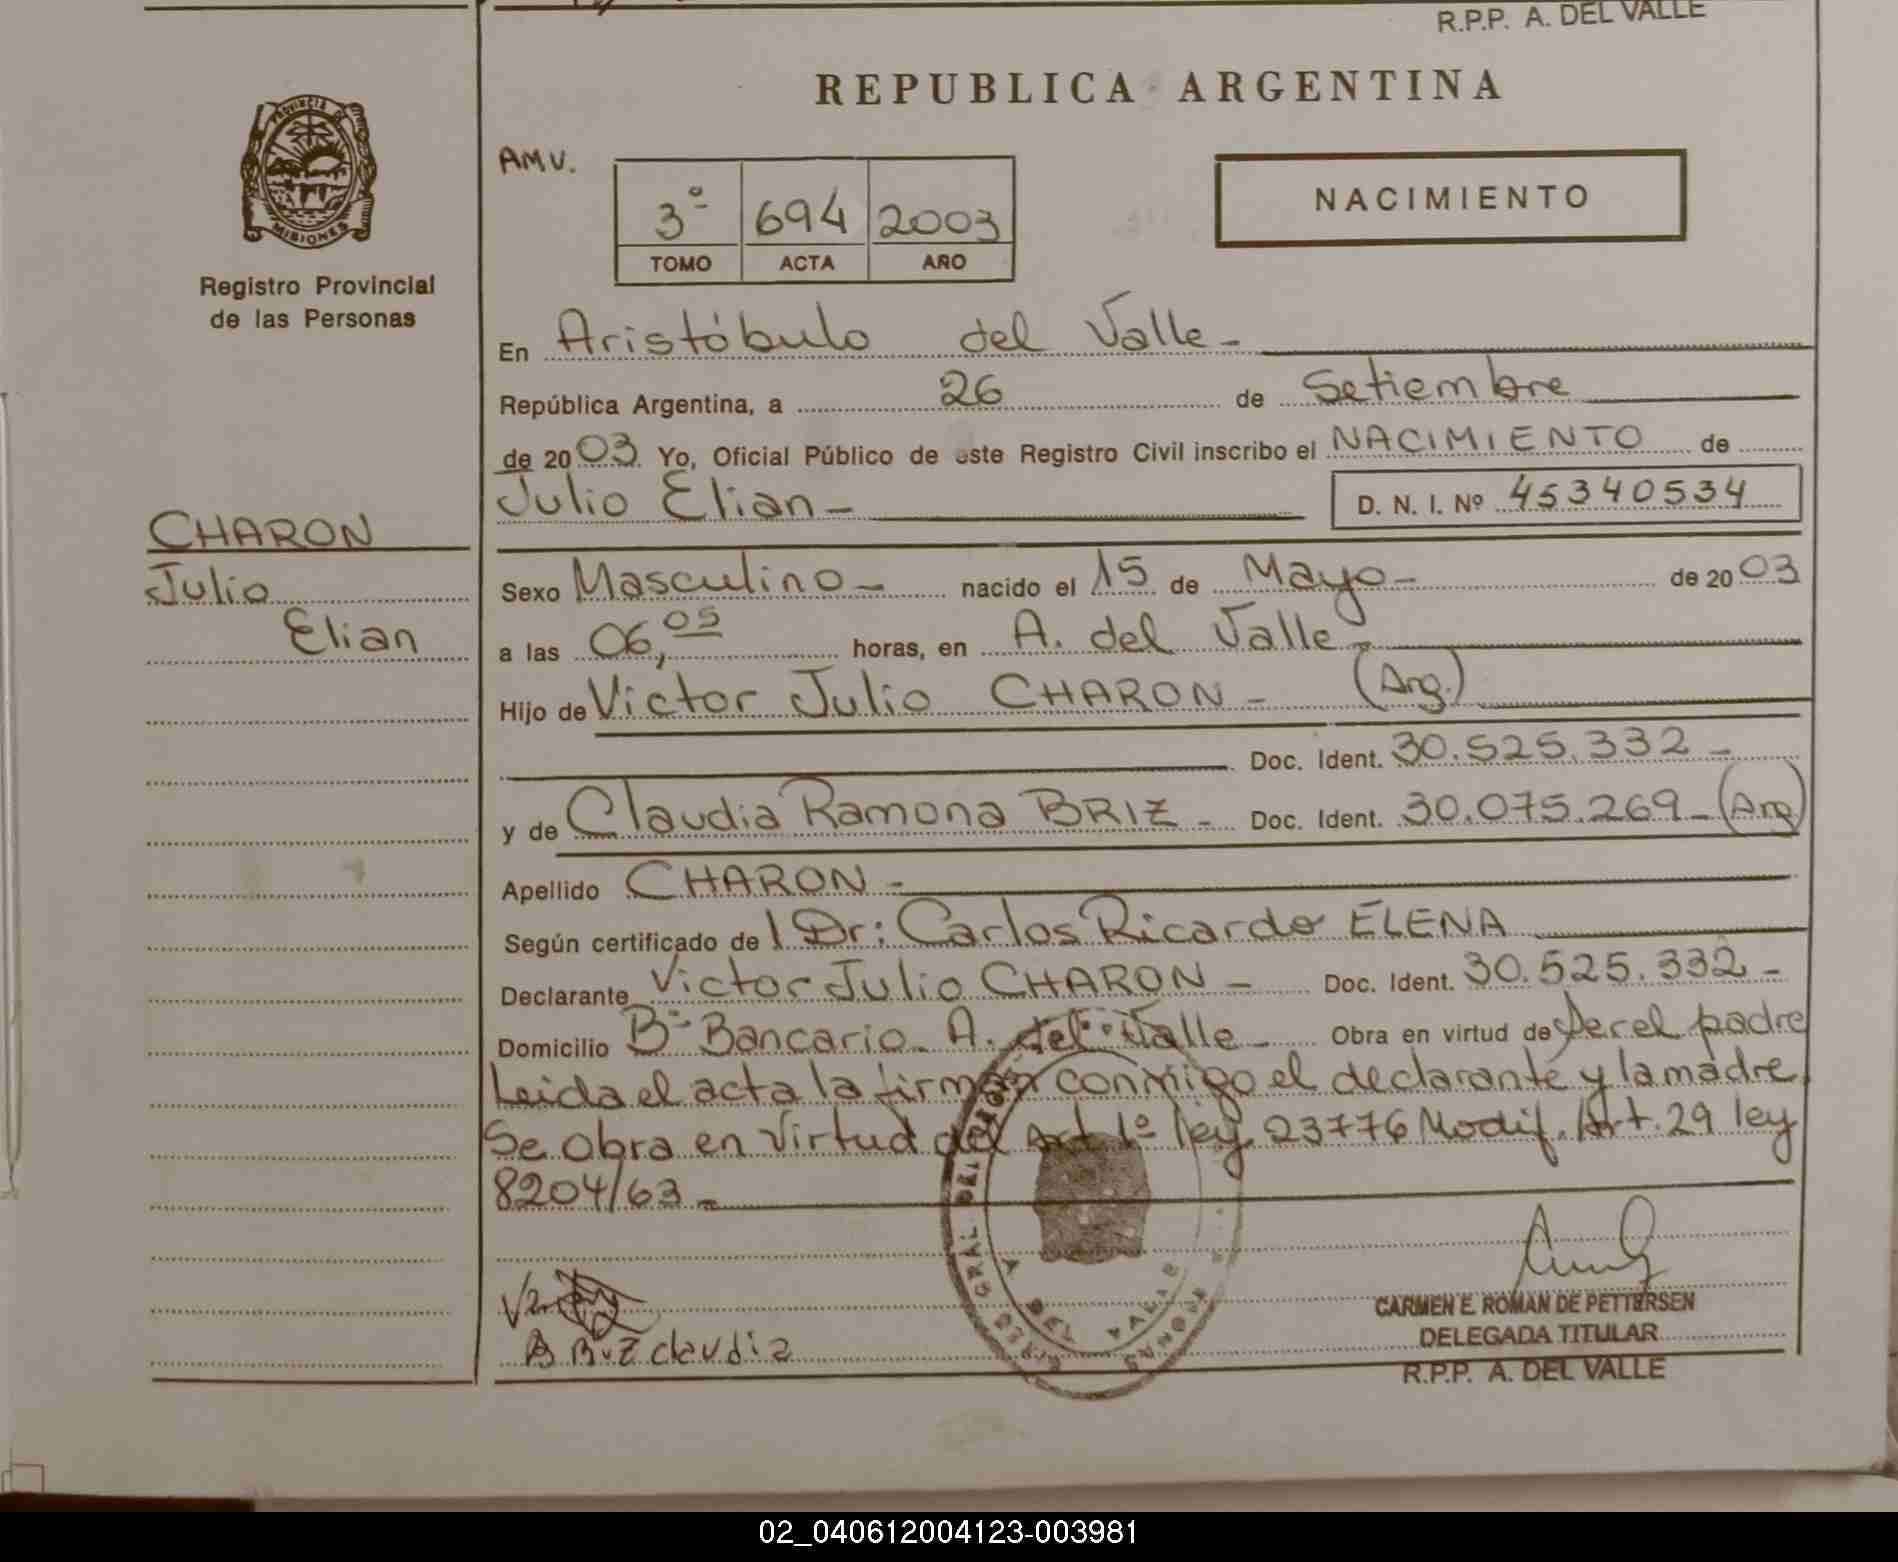 R.P.P. A. DEL VALLE
REPUBLICA ARGENTINA
PROVINCIA DE
MISIONES
Registro Provincial
de las Personas
AMV.
3º 694 2003
TOMO ACTA AÑO
NACIMIENTO
En Aristóbulo del Valle -
República Argentina, a 26 de Setiembre
de 2003. Yo, Oficial Público de este Registro Civil inscribo el NACIMIENTO de
Julio Elian -
D. N. I. Nº 45340534
CHARON
Julio
Elian
Sexo Masculino - nacido el 15 de Mayo - de 2003
a las 06,05 horas, en A. del Valle -
Hijo de Victor Julio CHARON - (Arg.)
Doc. Ident. 30.525.332 -
y de Claudia Ramona BRIZ - Doc. Ident. 30.075.269 - (Arg)
Apellido CHARON -
Según certificado de l Dr: Carlos Ricardo ELENA
Declarante Victor Julio CHARON - Doc. Ident. 30.525.332 -
Domicilio Bº Bancario - A. del Valle - Obra en virtud de Ser el padre
Leida el acta la firman conmigo el declarante y la madre.
Se obra en virtud del Art 1º ley 23776 Modif. Art. 29 ley
8204/63 -
A DEL VALLE
B Briz claudia
CARMEN E. ROMAN DE PETTERSEN
DELEGADA TITULAR
R.P.P. A. DEL VALLE
02_040612004123-003981